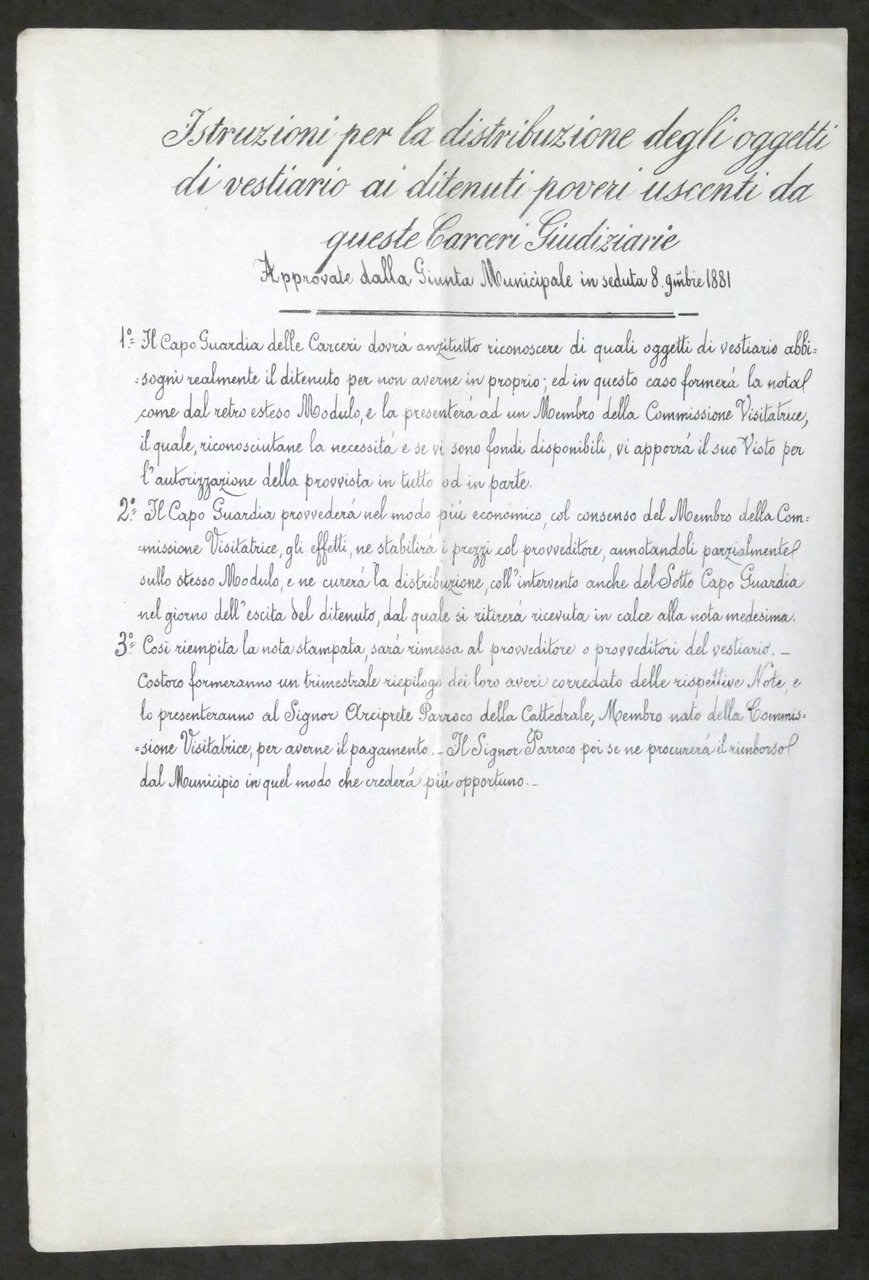 Istruzioni per la distribuzione degli oggetti
di vestiario ai ditenuti poveri uscenti da
queste Carceri Giudiziarie
Approvate dalla Giunta Municipale in seduta 8. 9mbre 1881
1°= Il Capo Guardia delle Carceri dovrá anzitutto riconoscere di quali oggetti di vestiario abbi=
=sogni realmente il ditenuto per non averne in proprio; ed in questo caso formerá la nota
come dal retro esteso Modulo, e la presenterá ad un Membro della Commissione Visitatrice,
il quale, riconosciutane la necessitá e se vi sono fondi disponibili, vi apporrá il suo Visto per
l'autorizzazione della provvista in tutto od in parte.
2°= Il Capo Guardia provvederá nel modo piú economico, col consenso del Membro della Com=
=missione Visitatrice, gli effetti, ne stabilirá i prezzi col provveditore, annotandoli parzialmente
sullo stesso Modulo, e ne curerá la distribuzione, coll'intervento anche del Sotto Capo Guardia
nel giorno dell'escita del ditenuto, dal quale si ritirerá ricevuta in calce alla nota medesima.
3°= Cosi riempita la nota stampata, sará rimessa al provveditore o provveditori del vestiario. _
Costoro formeranno un trimestrale riepilogo dei loro averi corredato delle rispettive Note, e
lo presenteranno al Signor Arciprete Parroco della Cattedrale, Membro nato della Commis=
=sione Visitatrice, per averne il pagamento. _ Il Signor Parroco poi se ne procurerá il rimborso
dal Municipio in quel modo che crederá piú opportuno. _